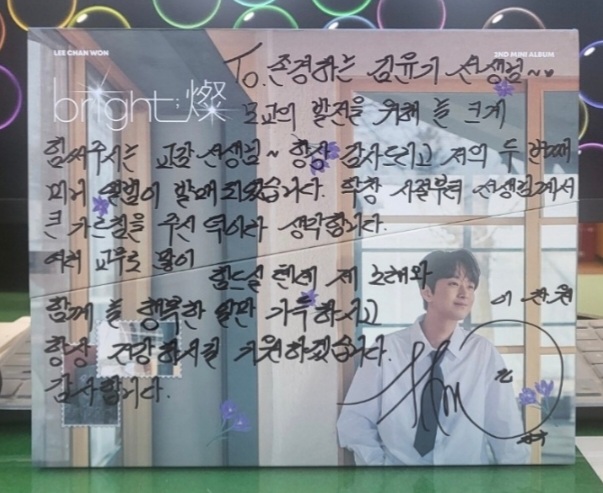 LEE CHAN WON
2ND MINI ALBUM
bright; 燦
To. 존경하는 김유기 선생님~♥
모교의 발전을 위해 늘 크게
힘써주시는 교감 선생님~ 항상 감사드리고 저의 두 번째
미니 앨범이 발매 되었습니다. 학창 시절부터 선생님께서
큰 가르침을 주신 덕이라 생각합니다.
여러 교무로 많이
힘드실 텐데 제 노래와
함께 늘 행복한 일만 가득하시고
항상 건강하시길 기원하겠습니다.
감사합니다.
이찬원